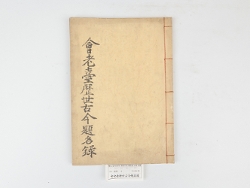 會老堂歷世古今題名錄